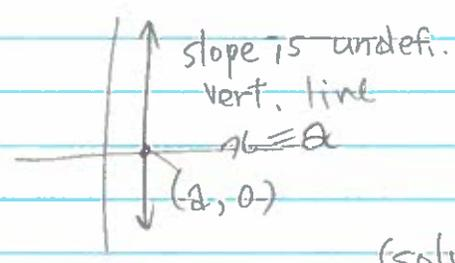 slope is undefi.
vert. line
x = 2
(2, 0)
(solu